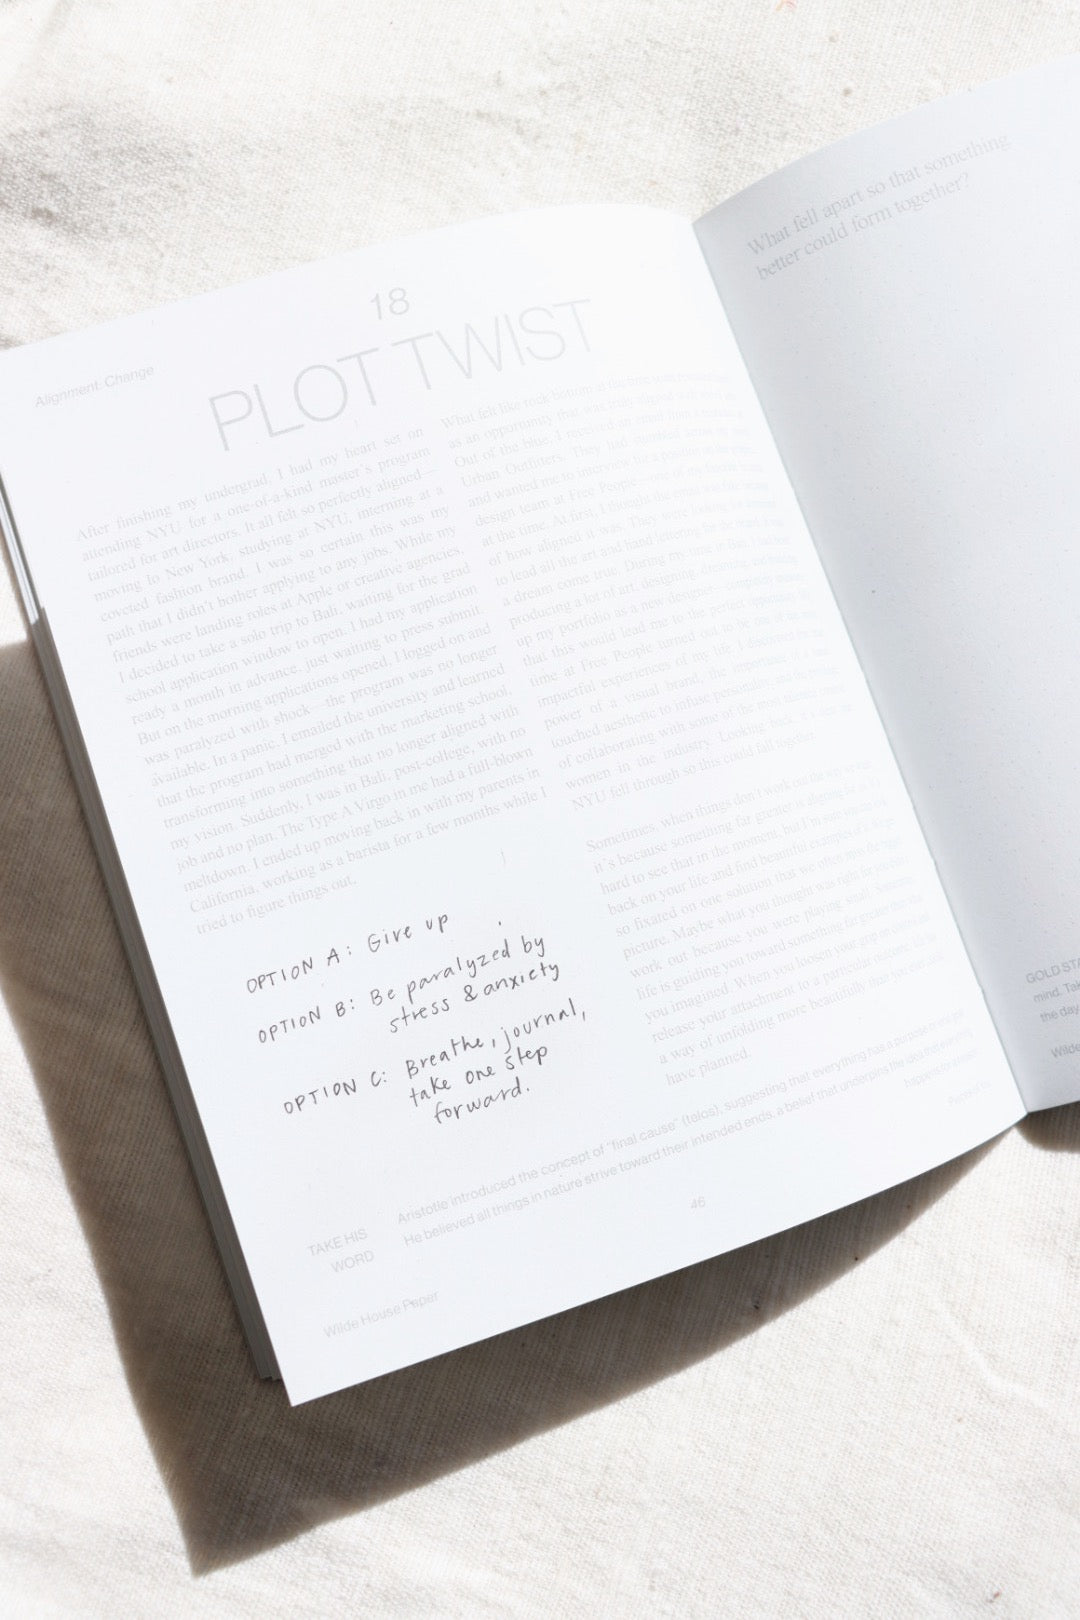 Alignment: Change
18
PLOT TWIST
After finishing my undergrad, I had my heart set on
attending NYU for a one-of-a-kind master's program
tailored for art directors. It all felt so perfectly aligned—
moving to New York, studying at NYU, interning at a
coveted fashion brand. I was so certain this was my
path that I didn't bother applying to any jobs. While my
friends were landing roles at Apple or creative agencies,
I decided to take a solo trip to Bali, waiting for the grad
school application window to open. I had my application
ready a month in advance, just waiting to press submit.
But on the morning applications opened, I logged on and
was paralyzed with shock—the program was no longer
available. In a panic, I emailed the university and learned
that the program had merged with the marketing school,
transforming into something that no longer aligned with
my vision. Suddenly, I was in Bali, post-college, with no
job and no plan. The Type A Virgo in me had a full-blown
meltdown. I ended up moving back in with my parents in
California, working as a barista for a few months while I
tried to figure things out.
OPTION A: Give up
OPTION B: Be paralyzed by
stress & anxiety
OPTION C: Breathe, journal,
take one step
forward.
What felt like rock bottom at the time
as an opportunity that was truly aligned
Out of the blue, I received an email from a
Urban Outfitters. They had stumbled across my
and wanted me to interview for a position on the
design team at Free People—one of my favorite
at the time. At first, I thought the email was fake because
of how aligned it was. They were looking for someone
to lead all the art and hand lettering for the brand. It was
a dream come true. During my time in Bali, I had been
producing a lot of art, designing, creating,
up my portfolio as a new designer, completely unaware
that this would lead me to the perfect opportunity. My
time at Free People turned out to be one of the most
impactful experiences of my life. I discovered the true
power of a visual brand, the importance of a
touched aesthetic to infuse personality, and the privilege
of collaborating with some of the most talented creative
women in the industry. Looking back, it's clear that
NYU fell through so this could fall together.
Sometimes, when things don't work out the way we want,
it's because something far greater is aligning for us. It's
hard to see that in the moment, but I'm sure you can look
back on your life and find beautiful examples of it. We get
so fixated on one solution that we often miss the bigger
picture. Maybe what you thought was right for you didn't
work out because you were playing small. Sometimes
life is guiding you toward something far greater than what
you imagined. When you loosen your grip on control and
release your attachment to a particular outcome, life has
a way of unfolding more beautifully than you could
have planned.
TAKE HIS
WORD
Aristotle introduced the concept of "final cause" (telos), suggesting that everything has a purpose or end goal.
He believed all things in nature strive toward their intended ends, a belief that underpins the idea that everything
happens for a reason.
Wilde House Paper
46
What fell apart so that something
better could form together?
GOLD STA
mind. Tak
the day
Wilde